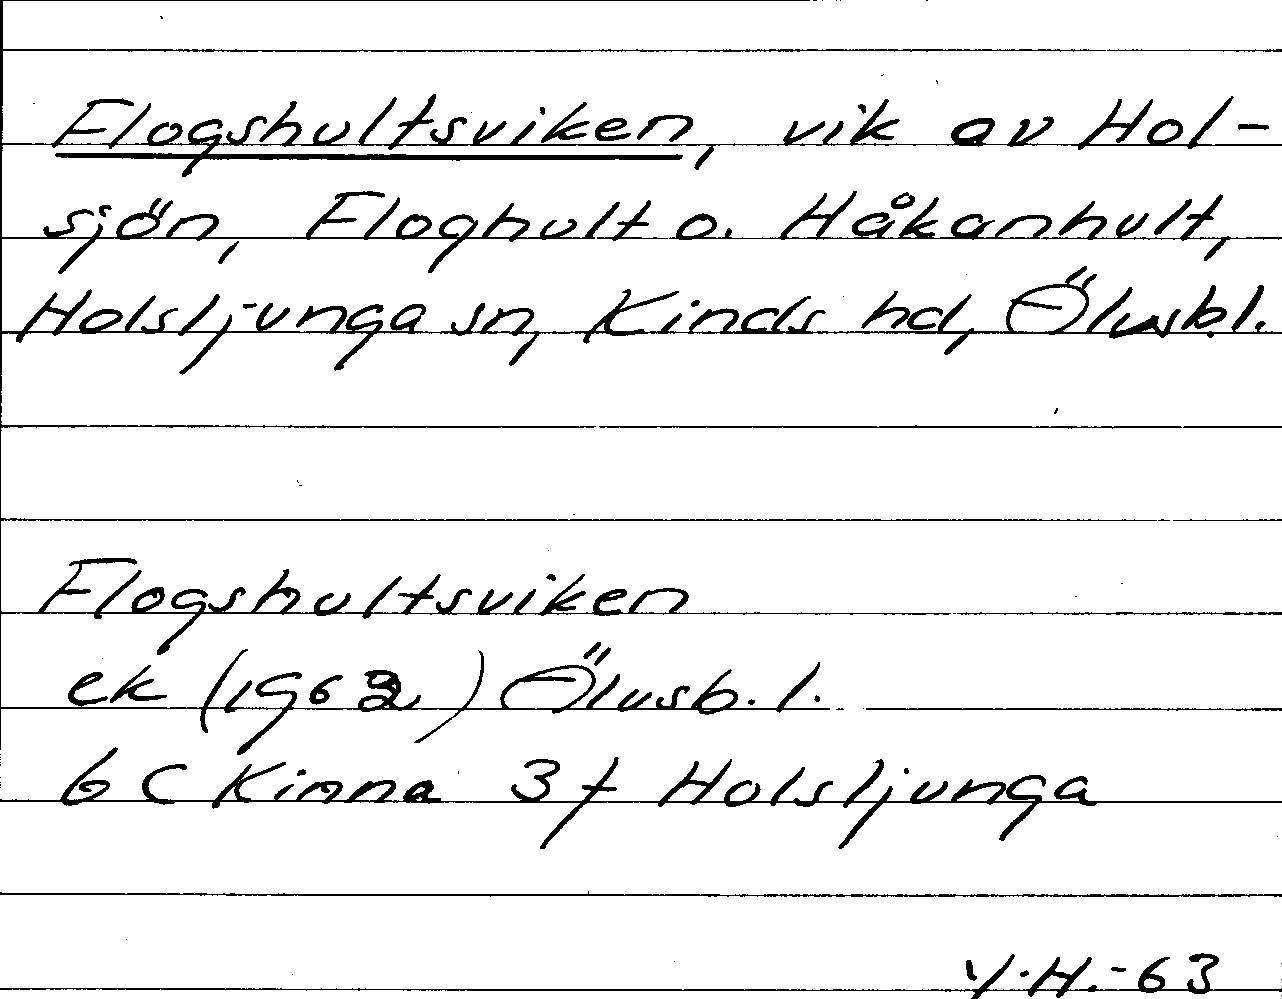 Flogshultsviken, vik av Hol-
sjön, Floghult o. Håkanhult,
Holsljunga sn, Kinds hd, Älvsb.l.
Flogshultsviken
ek (1962) Älvsb. l.
6 C Kinna 3 f Holsljunga
Y.H.-63